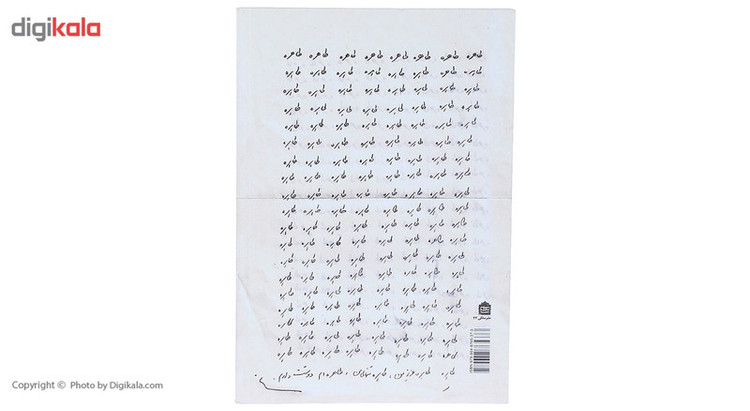 digikala
طاهره طاهره طاهره طاهره طاهره طاهره طاهره طاهره
طاهره طاهره طاهره طاهره طاهره طاهره طاهره طاهره
طاهره طاهره طاهره طاهره طاهره طاهره طاهره طاهره
طاهره طاهره طاهره طاهره طاهره طاهره طاهره طاهره
طاهره طاهره طاهره طاهره طاهره طاهره طاهره طاهره
طاهره طاهره طاهره طاهره طاهره طاهره طاهره طاهره
طاهره طاهره طاهره طاهره طاهره طاهره طاهره طاهره
طاهره طاهره طاهره طاهره طاهره طاهره طاهره طاهره
طاهره طاهره طاهره طاهره طاهره طاهره طاهره طاهره
طاهره طاهره طاهره طاهره طاهره طاهره طاهره طاهره
طاهره طاهره طاهره طاهره طاهره طاهره طاهره طاهره
طاهره طاهره طاهره طاهره طاهره طاهره طاهره طاهره
طاهره طاهره طاهره طاهره طاهره طاهره طاهره طاهره
طاهره طاهره طاهره طاهره طاهره طاهره طاهره طاهره
طاهره طاهره طاهره طاهره طاهره طاهره طاهره طاهره
طاهره طاهره طاهره طاهره طاهره طاهره طاهره طاهره
طاهره طاهره طاهره طاهره طاهره طاهره طاهره طاهره
طاهره طاهره طاهره طاهره طاهره طاهره طاهره طاهره
طاهره طاهره طاهره طاهره طاهره طاهره طاهره طاهره
طاهره طاهره عزیز من، طاهره، طاهره ام دوستت دارم.
Copyright © Photo by Digikala.com